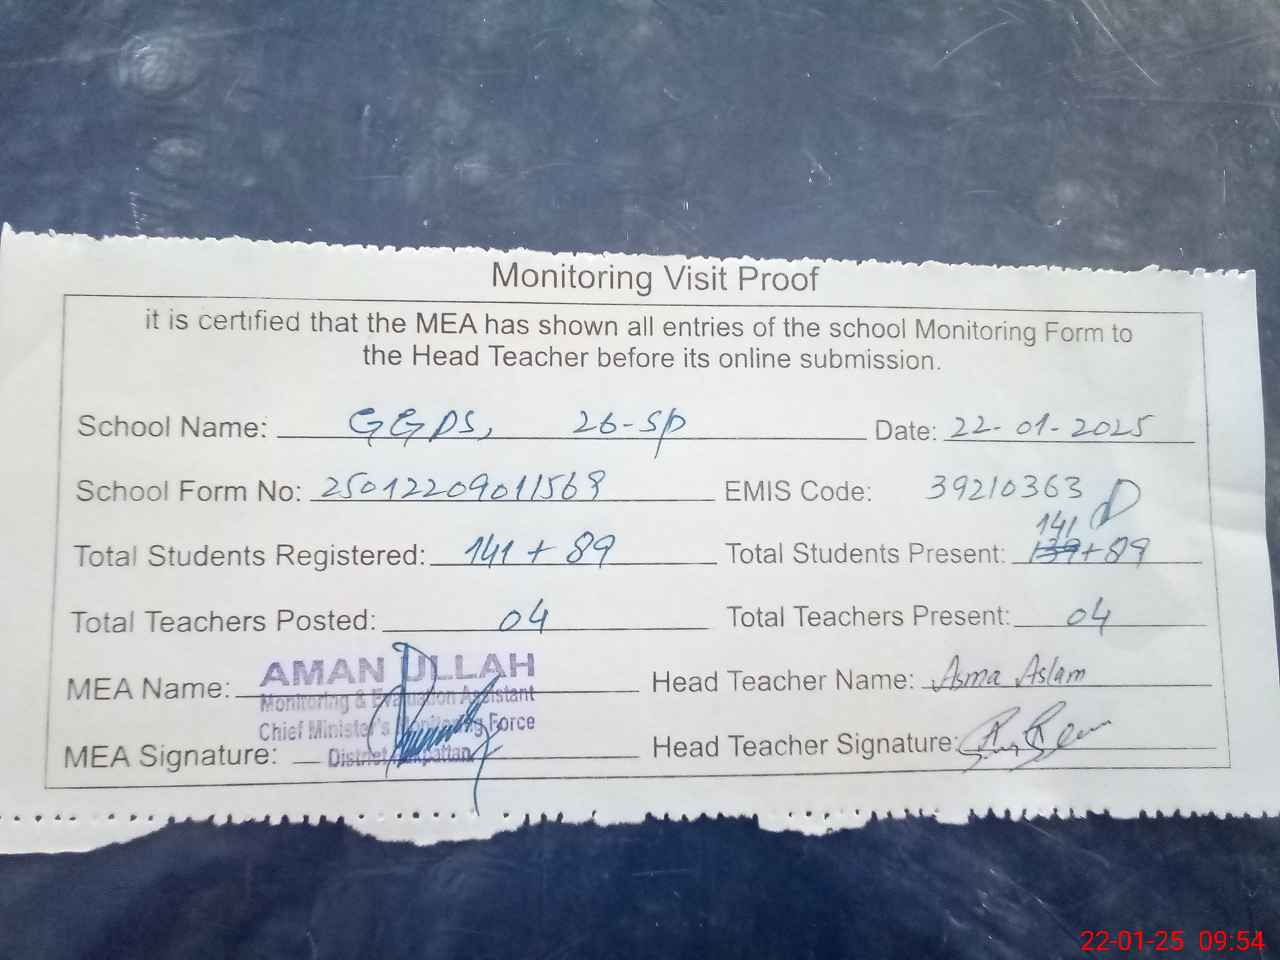 Monitoring Visit Proof
it is certified that the MEA has shown all entries of the school Monitoring Form to
the Head Teacher before its online submission.
School Name: GGPS, 26-SP Date: 22-01-2025
School Form No: 25012209011568 EMIS Code: 39210363
141
Total Students Registered: 141 + 89 Total Students Present: 139 + 89
Total Teachers Posted: 04 Total Teachers Present: 04
MEA Name: AMAN ULLAH Head Teacher Name: Asma Aslam
Monitoring & Evaluation Assistant
Chief Minister's Monitoring Force
MEA Signature: District Pakpattan Head Teacher Signature:
22-01-25 09:54